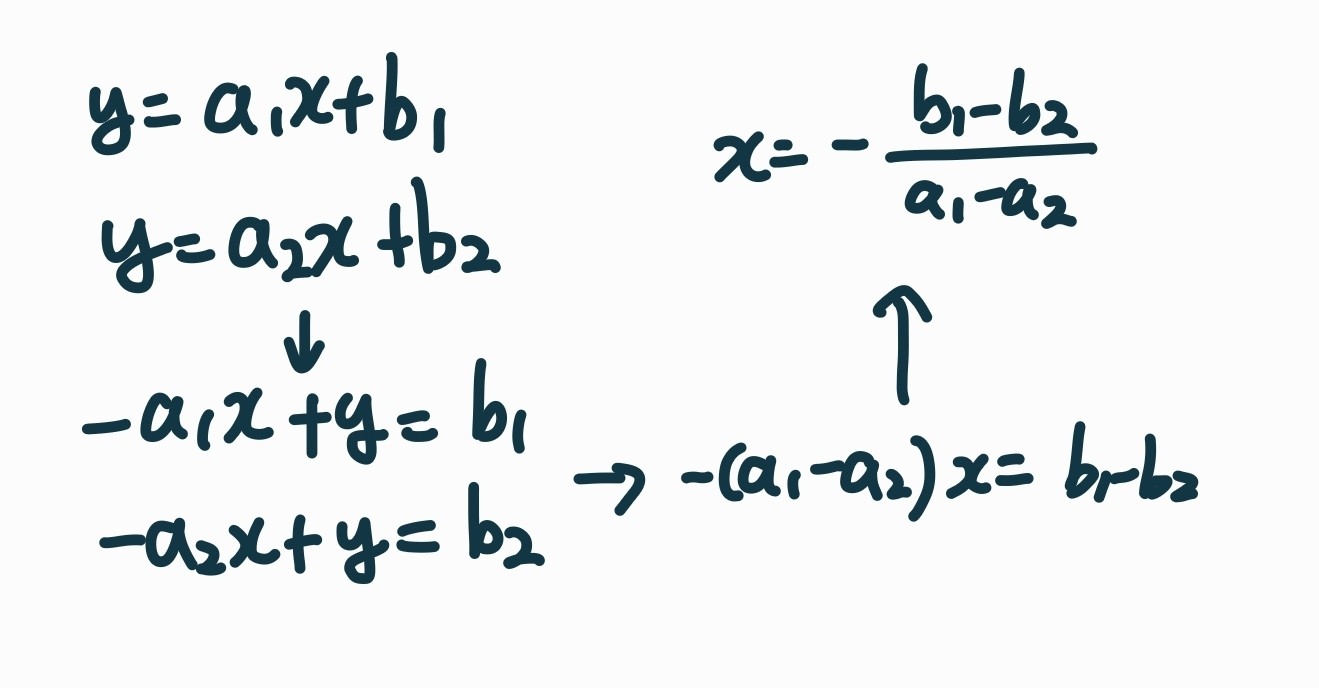 y = a₁x + b₁
y = a₂x + b₂
↓
-a₁x + y = b₁
-a₂x + y = b₂
→ -(a₁ - a₂)x = b₁ - b₂
↑
x = - \frac{b₁ - b₂}{a₁ - a₂}